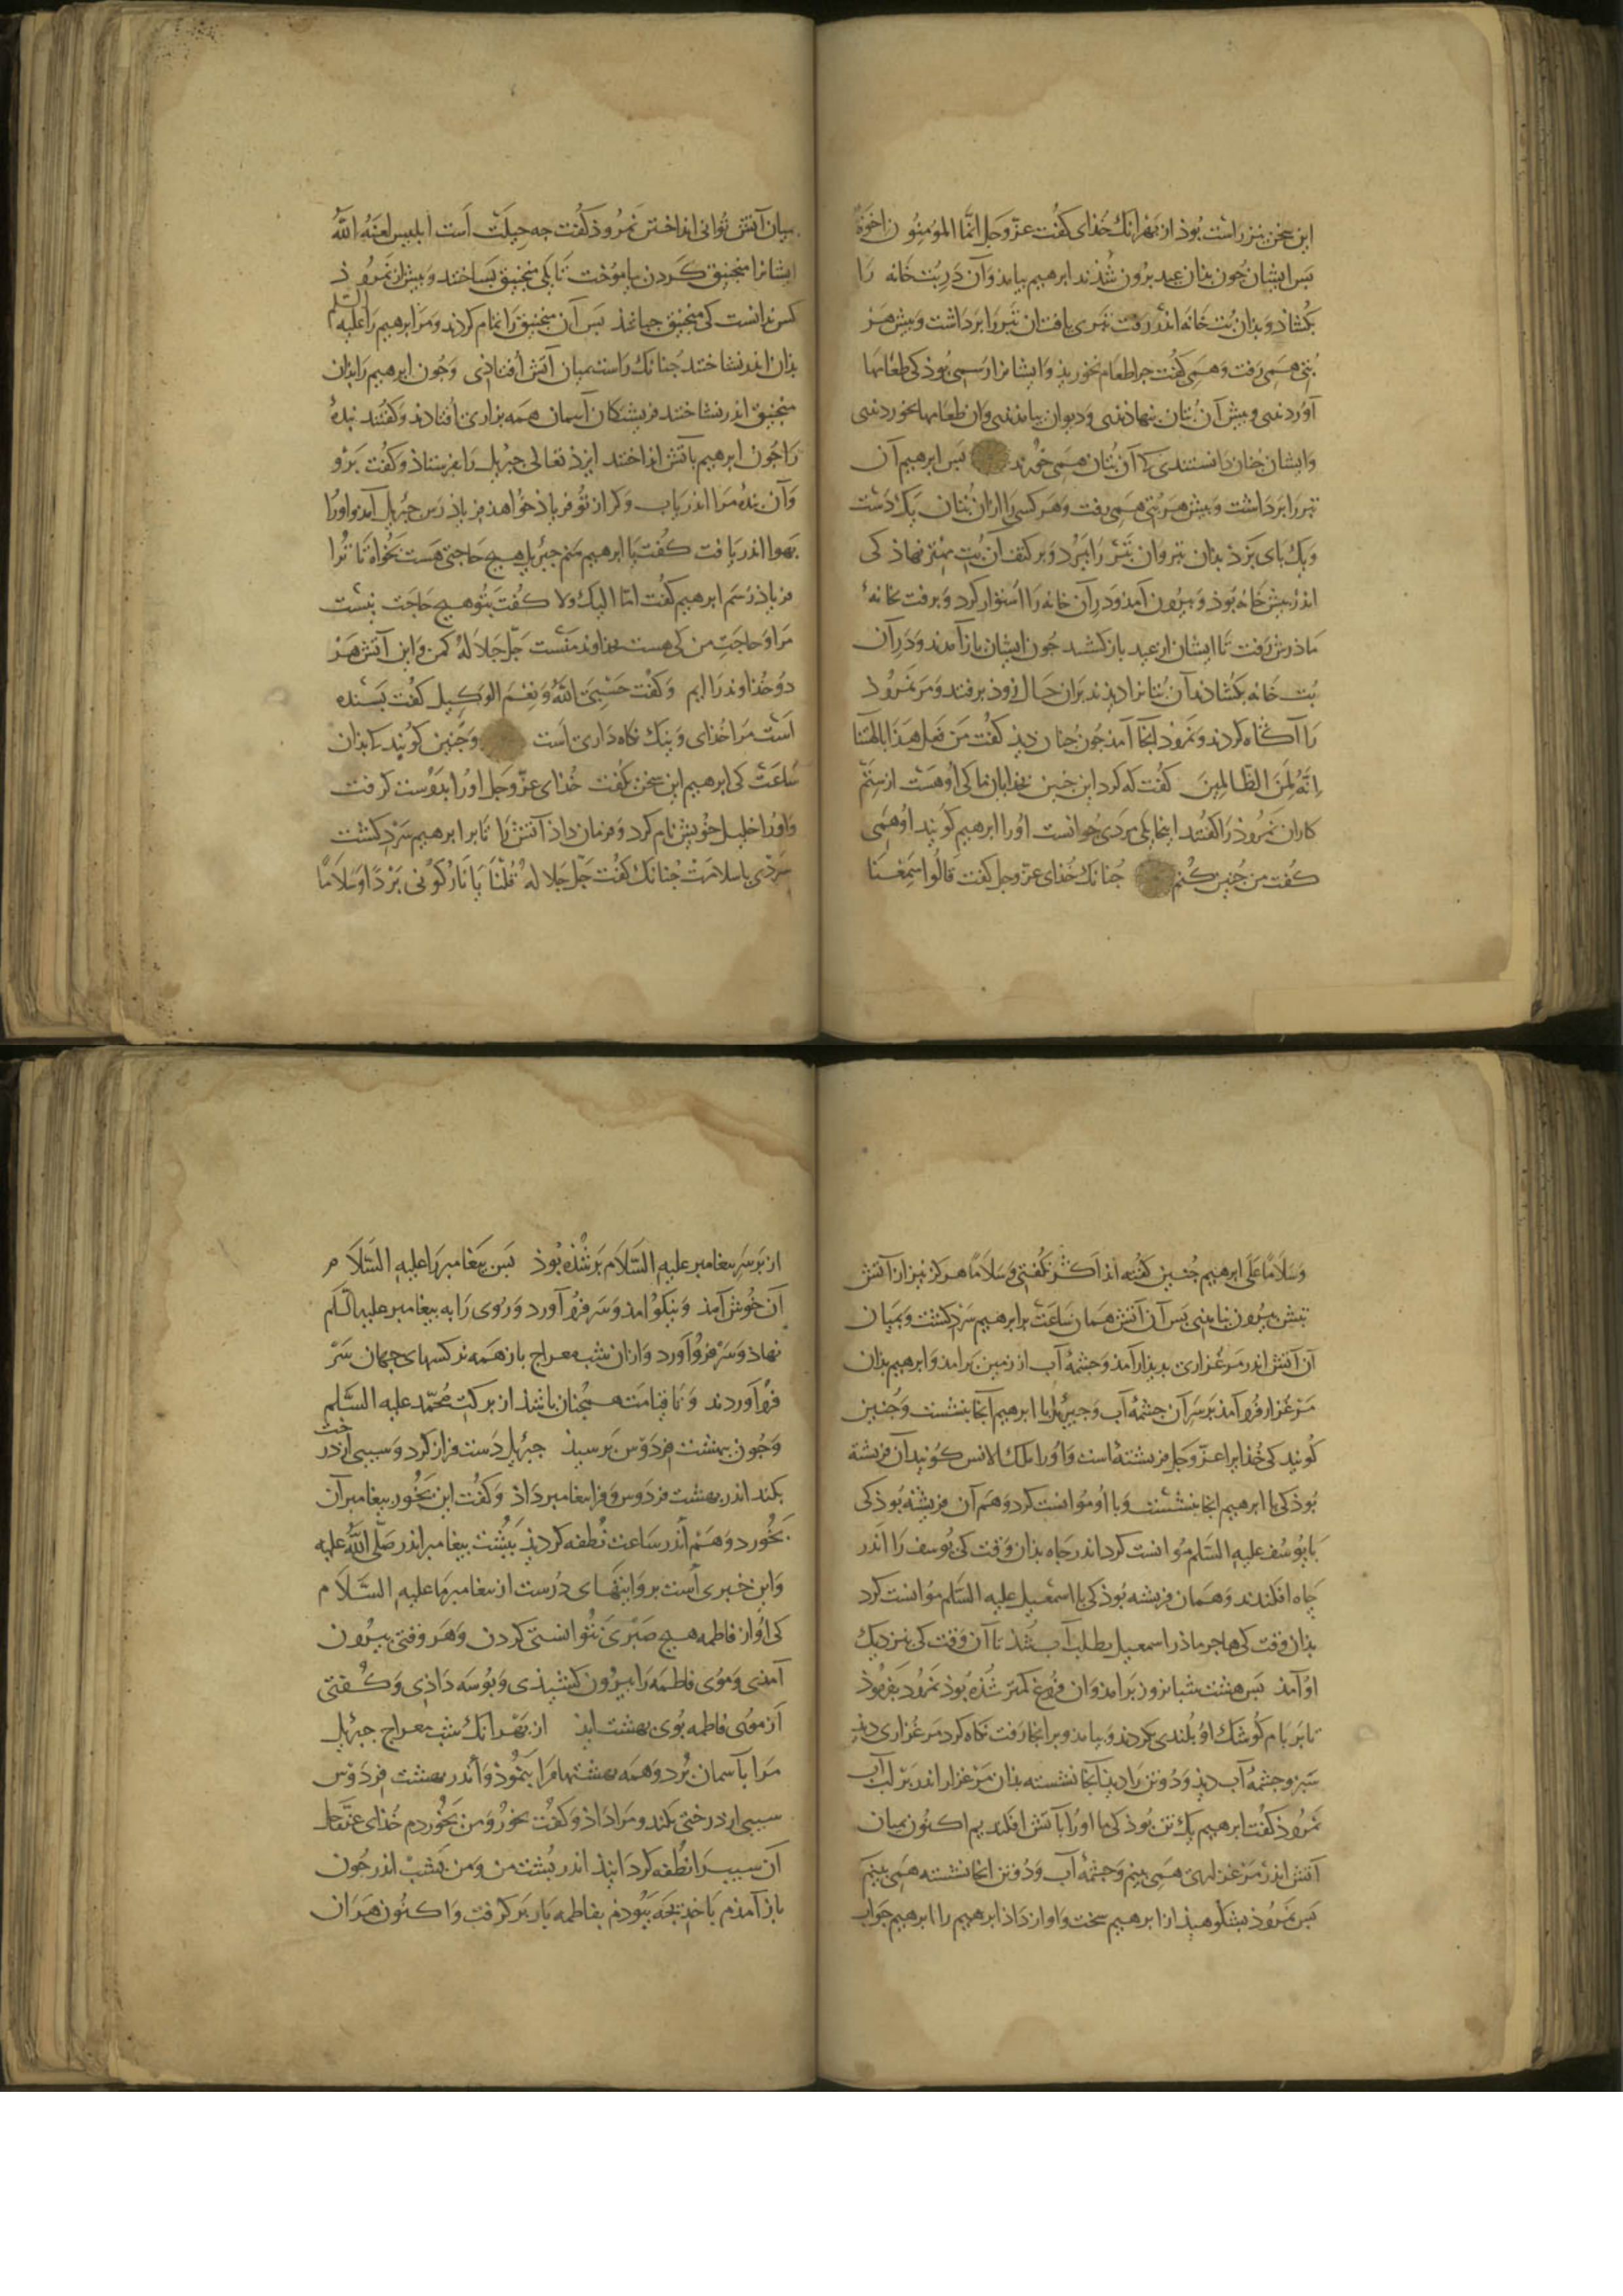 این سخن نیز راست بوذ از بهر انک خذای کفت عزّ وجل انّما المؤمنون اخوةٌ
بس ایشان جون بذان عید برون شذند ابرهیم بیامذ وآن در بُت خانه را
بکشاذ وبذان بت خانه اندر رفت تبری یافت ان تبر را برداشت وبیش هر
بُتی همی رفت وهمی کفت جرا طعام نخوریذ وایشانرا رسمی بوذ کی طعامها
آوردندی وبیش آن بُتان بنهاذندی ودیوان بیامدندی وان طعامها بخوردندی
وایشان جنان دانستندی کآن بتان همی خورند بس ابرهیم آن
تبر را برداشت وبیش هر بُتی همی رفت وهر کسی را ازان بُتان یک دست
ویک بای بزد بذان تبر وان تبر را ببرد وبر کتف آن بت مهتر نهاذ کی
اندر بیش خانه بوذ وبیرون آمذ ودر آن خانه را استوار کرد وبرفت بخانهٔ
ماذرش رفت تا ایشان از عید باز کشتند جون ایشان باز آمدند ودر آن
بت خانه بکشاذند آن بُتانرا دیذند بران حال زوذ برفتند ومر نمروذ
را آکاه کردند ونمروذ آنجا آمذ جون جنان دیذ کفت مَن فعل هذا بالهتنا
اِنّه لمن الظّالمین کفت که کرد این جنین بخذایان ما کی اوهست از ستم
کاران نمروذ را کفتند اینجا یکی مردی جوانست اورا ابرهیم کویند او همی
کفت من جنین کنم جنانک خذای عزّ وجل کفت قالوا سمعنا
میان آتش توانی انداختن نمروذ کفت جه حیلت است ابلیس لعنه الله
ایشانرا منجنیق کردن بیاموخت تا یکی منجنیق بساختند وبیش از نمروذ
کس ندانست کی منجنیق جباشذ بس آن منجنیق را تمام کردند ومر ابرهیم را علیه السّلم
بذان اندر نشاختند جنانک راست بمیان آتش افتاذی وجون ابرهیم را بذان
منجنیق اندر نشاختند فریشتکان آسمان همه بزاری افتادند وکفتند بندهٔ
را جون ابرهیم باتش انداختند ایزذ تعالی جبریل را بفرستاذ وکفت برو
وآن بندهٔ مرا اندر یاب وکر از تو فریاذ خواهذ فریاذ رس جبریل آمذ واورا
بهوا اندر یافت کفت یا ابرهیم منم جبریل هیج حاجتی هست بخواه تا ترا
فریاذ رسم ابرهیم کفت امّا الیک ولا کفت بتو هیج حاجت نیست
مرا وحاجت من کی هست بخداوند منست جلّ جلاله کمن واین آتش هر
دو خذاوند را ایم وکفت حسبی الله ونعم الوکیل کفت بسنده
است مرا خذای ونیک نکاه داری است وجنین کویند کبذان
ساعت کی ابرهیم این سخن بکفت خذای عزّ وجل اورا بدوست کرفت
واورا خلیل خویش نام کرد وفرمان داذ آتش را تا بر ابرهیم سرد کشت
سردی باسلامت جنانک کفت جلّ جلاله قُلنا یا نارُ کونی بَردًا وسلامًا
وسلامًا علی ابرهیم جنین کفته اند اکر نکفتی وسلامًا هرکز نیز از آتش
تبش بیرون نیامذی بس آن آتش همان ساعت بر ابرهیم سرد کشت وبمیان
آن آتش اندر مرغزاری بدیذار آمذ وجشمهٔ آب از زمین برآمذ وابرهیم بذان
مرغزار فروآمذ بر سر آن جشمهٔ آب وجبریل با ابرهیم آنجا بنشست وجنین
کویند کی خذایرا عزّ وجل فریشتهٔ است واورا ملک الانس کویند آن فریشته
بوذ کی با ابرهیم انجا بنشست وبا او موانست کرد وهم آن فریشته بوذ کی
با یوسف علیه السّلم موانست کرد اندر جاه بذان وقت کی یوسف را اندر
جاه افکندند وهمان فریشه بوذ کی با اسمعیل علیه السّلم موانست کرد
بذان وقت کی هاجر ماذر اسمعیل بطلب آب شذ تا آن وقت کی بنزدیک
او آمذ بس هشت شبانروز برامذ وان فروغ کمتر شذه بوذ نمروذ بفرموذ
تا بر بام کوشک او بلندی بکردند وبیامذ وبر انجا رفت نکاه کرد مرغزاری دیذ
سبز وجشمهٔ آب دیذ ودو تن را دیذ آنجا نشسته بذان مرغزار اندر بر لب آب
نمروذ کفت ابرهیم یک تن بوذ کی ما اورا بآتش افکندیم اکنون بمیان
آتش اندر مرغزاری همی بینم وجشمهٔ آب ودو تن انجا نشسته همی بینم
بس نمروذ بشکوهیذ از ابرهیم سخت واواز داذ ابرهیم را ابرهیم جواب
از بر سر بیغامبر علیه السّلام بر شذه بوذ بس بیغامبر را علیه السّلام
آن خوش آمذ ونیکو امذ وسر فرو آورد وروی را به بیغامبر علیه السّلم
نهاذ وسر فرو آورد وازان شب معراج باز همه نرکسهای جهان سر
فرو آوردند وتا قیامت همجنان باشذ از برکت محمّد علیه السّلم
وجون ببهشت فردوس برسیذ جبریل دست فراز کرد وسیبی از درخت
بکند اندر بهشت فردوس وفرا بیغامبر داذ وکفت این بخور بیغامبر آن
بخورد وهم اندر ساعت نُطفه کردیذ ببُشت بیغامبر اندر صلّی الله علیه
واین خبری است بروایتهای درست از بیغامبر ما علیه السّلام
کی او از فاطمه هیج صبری نتوانستی کردن وهر وقتی بیرون
آمذی وموی فاطمه را بیرون کشیذی وبوسه داذی وکفتی
از موی فاطمه بوی بهشت ایذ از بهر انک شب معراج جبریل
مرا بآسمان برد وهمه بهشتها مرا بنموذ واندر بهشت فردوس
سیبی از درختی بکند ومرا داذ وکفت بخور ومن بخوردم خذای عزّ وجل
آن سیب را نُطفه کردانیذ اندر بُشت من ومن بشب اندر جون
باز آمذم با خدیجه ببوذم بفاطمه بار بر کرفت واکنون هران